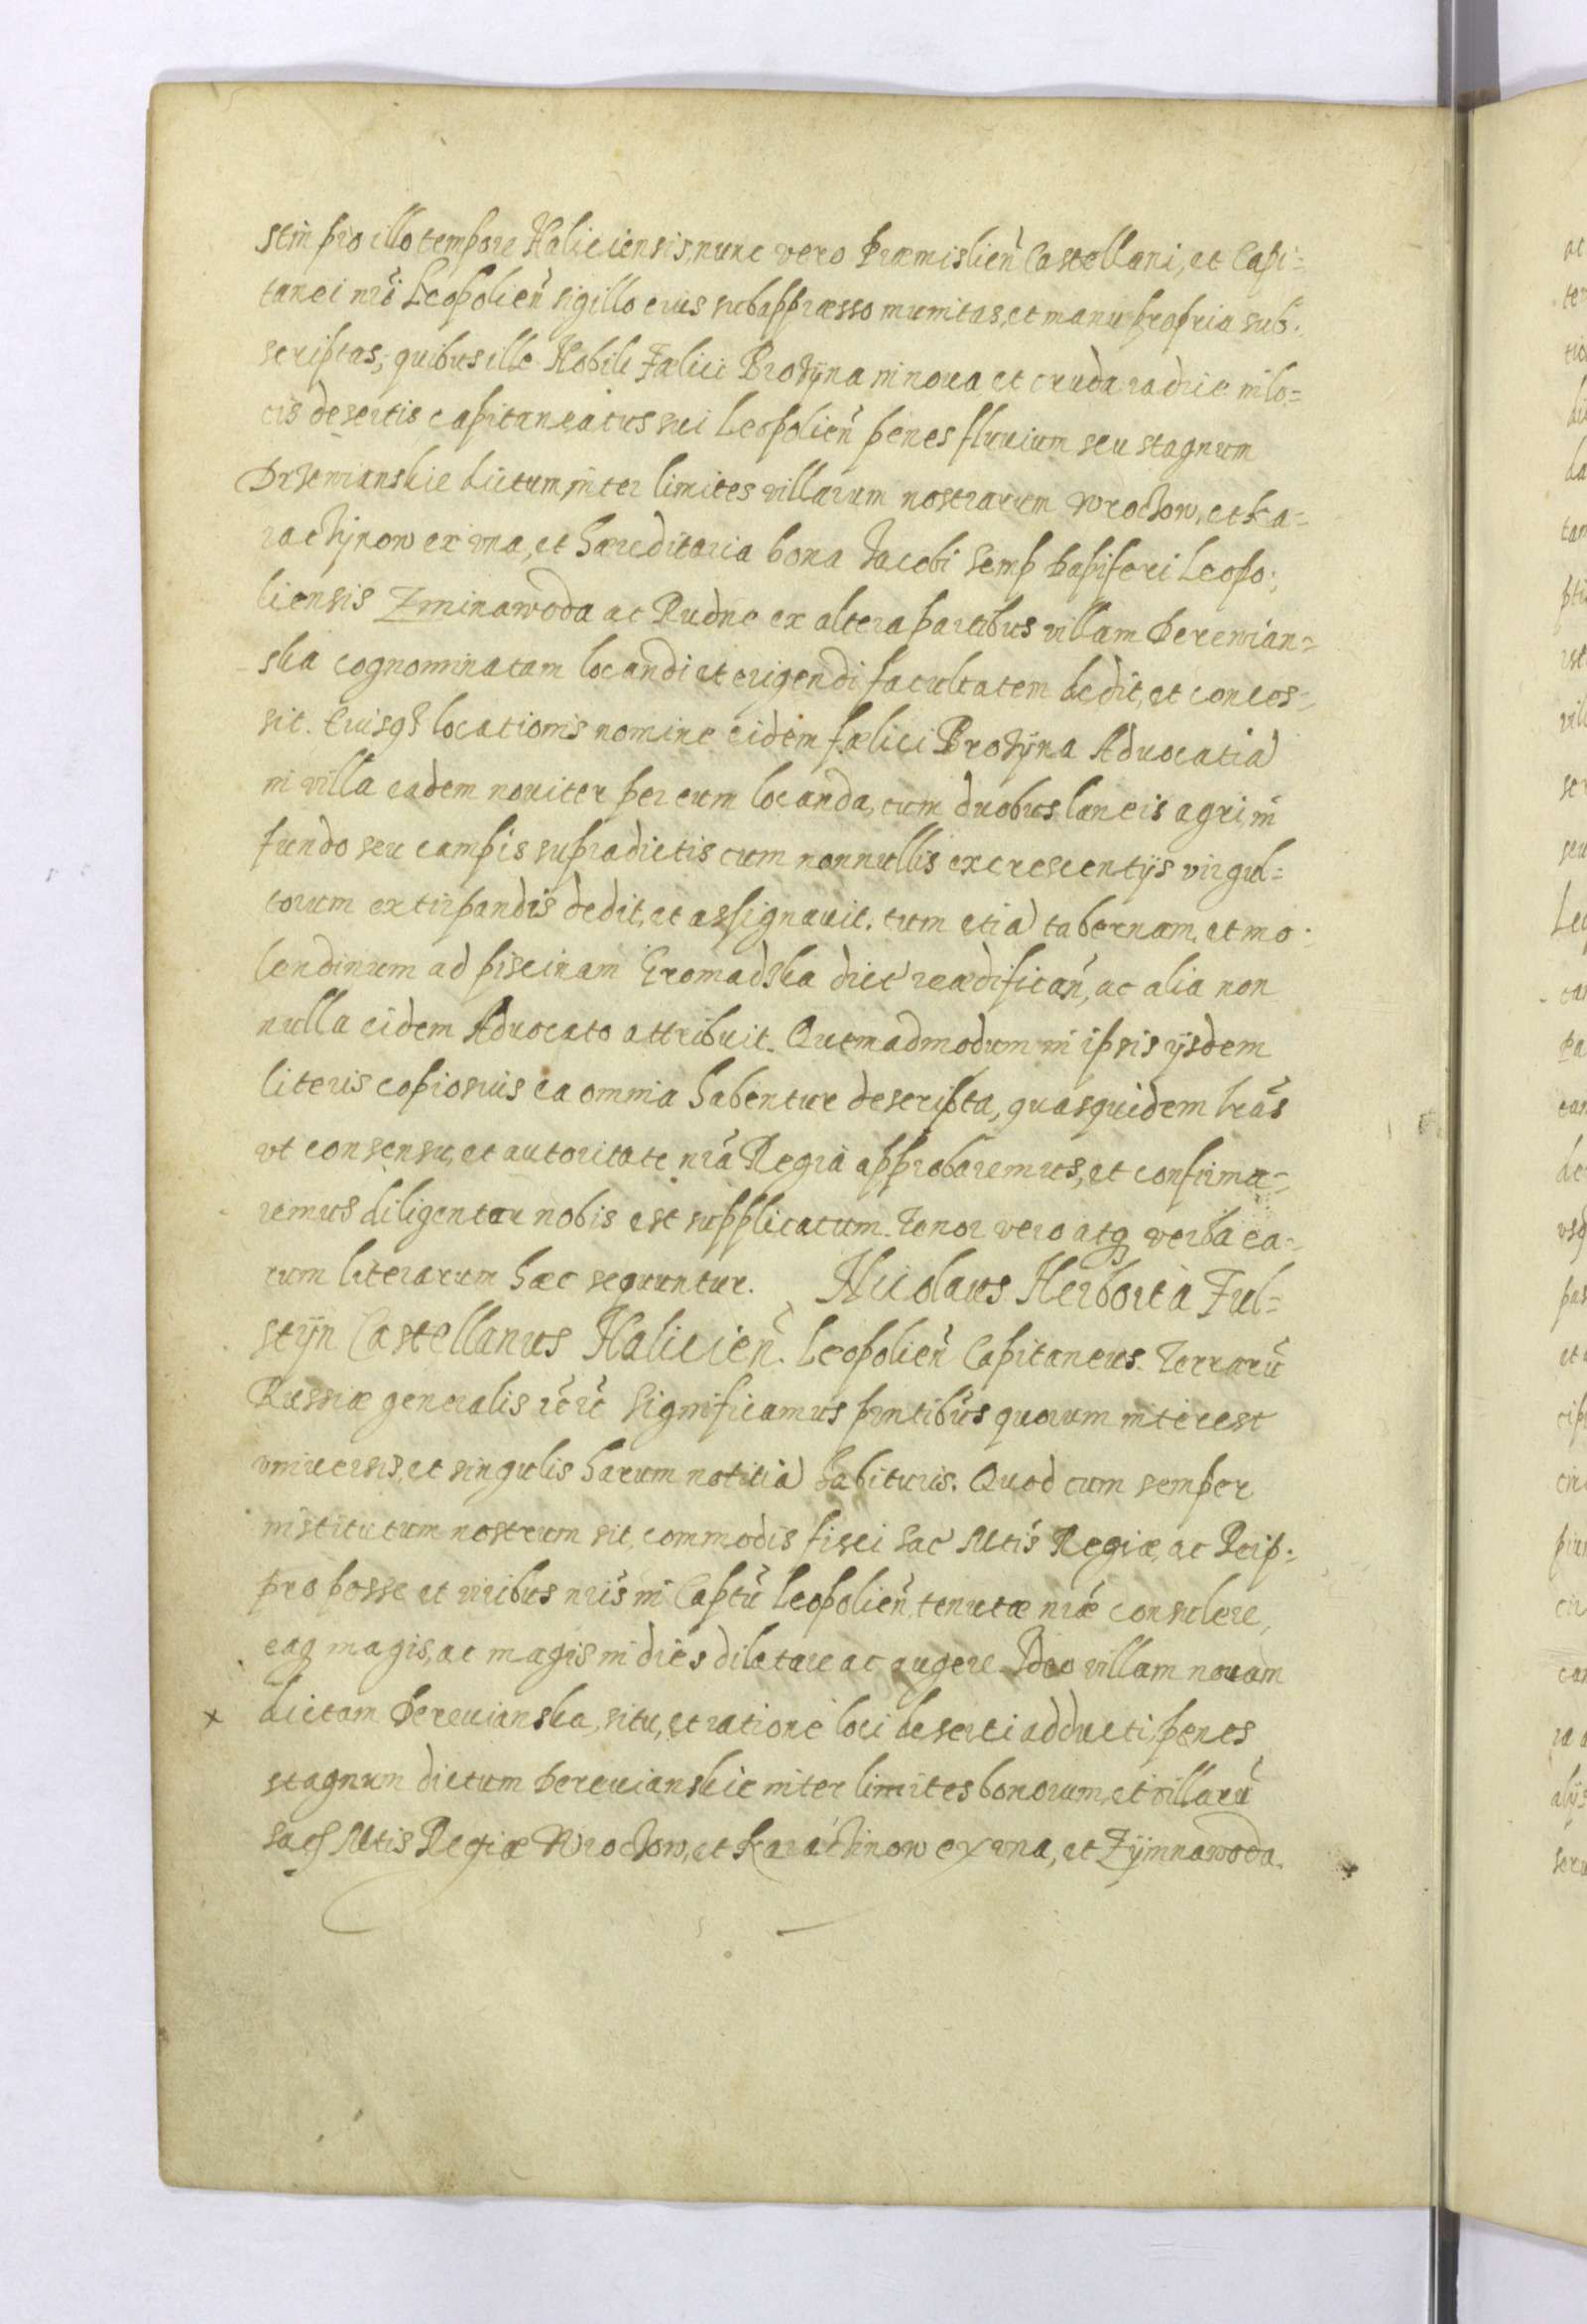 stin pro illo tempore Haliciensis, nunc vero Præmislień Castellani, et Capi=
tanei nrĩ Leopolień sigillo eius subappræsso munitas, et manu propria sub.
scriptas; quibus ille Nobili Fælici Brozÿna in noua et cruda radice in lo=
cis desertis capitaneatus sui Leopolień penes fluuium seu stagnum
Drzewianskie dictum inter limites villarum nostrarum Wrochow, et Ka=
rachÿnow ex vna, et hæreditaria bona Jacobi Semp Dapiferi Leopo:
liensis Zminawoda ac Rudne ex altera partibus villam Derewian=
ska cognominatam locandi et erigendi facultatem dedit, et conces=
sit. Cuisq locationis nomine eidem fælici Brozÿna Aduocatia
in villa eadem nouiter per eum locanda, cum duobus laneis agri, in
fundo seu campis supradictis cum nonnullis excrescentijs virgul=
torum extirpandis dedit, et assignauit. tum etia tabernam, et mo:
lendinum ad piscinam Gromadska dict reædificań, ac alia non
nulla eidem Aduocato attribuit. Quemadmodum in ipsis ijsdem
literis copiosius ea omnia habentur descripta, quasquidem lrãs
vt consensu, et autoritate nrã Regia approbaremus, et confirma=
remus diligenter nobis est supplicatum. Tenor vero atq verba ea=
rum literarum hæc sequuntur. Nicolaus Herbort à Ful=
stÿn Castellanus Halicień. Leopolień Capitaneus. Terrarũ
Russiæ generalis etc̃ significamus pñtibus quorum interest
vniuersis, et singulis harum notitia habituris. Quod cum semper
institutum nostrum sit, commodis fisci Sac Mtis Regiæ, ac Reip.
pro posse et viribus nrĩs in Captũ Leopolień, tenutæ nræ consulere,
eaq magis, ac magis in dies dilatare ac augere. Ideo villam nouam
x dictam Dereuianska, situ, et ratione loci deserti adducti, penes
stagnum dictum Dereuianskie inter limites bonorum, et villarũ
Sac Mtis Regiæ Wrochow, et Karachinow ex vna, et Zÿmnawoda.